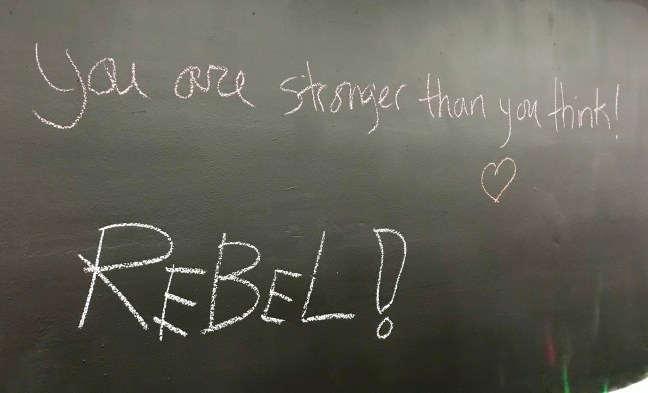 You are stronger than you think!
REBEL!